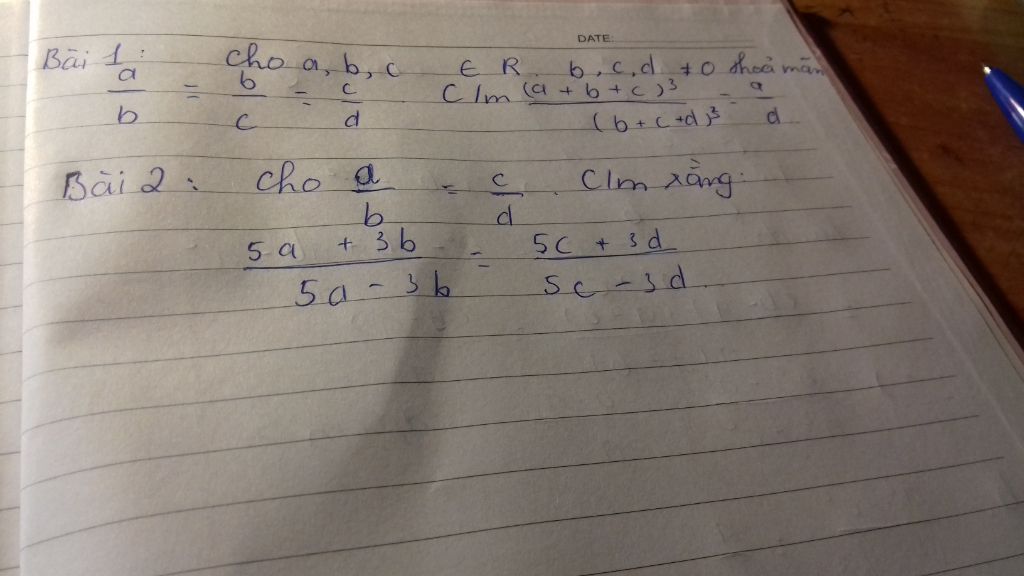 DATE:
Bài 1: cho a, b, c ∈ R. b, c, d ≠ 0 thoả mãn
a/b = b/c = c/d. C/m (a + b + c)³/(b + c + d)³ = a/d
Bài 2: cho a/b = c/d. C/m rằng:
5a + 3b/5a - 3b = 5c + 3d/5c - 3d.